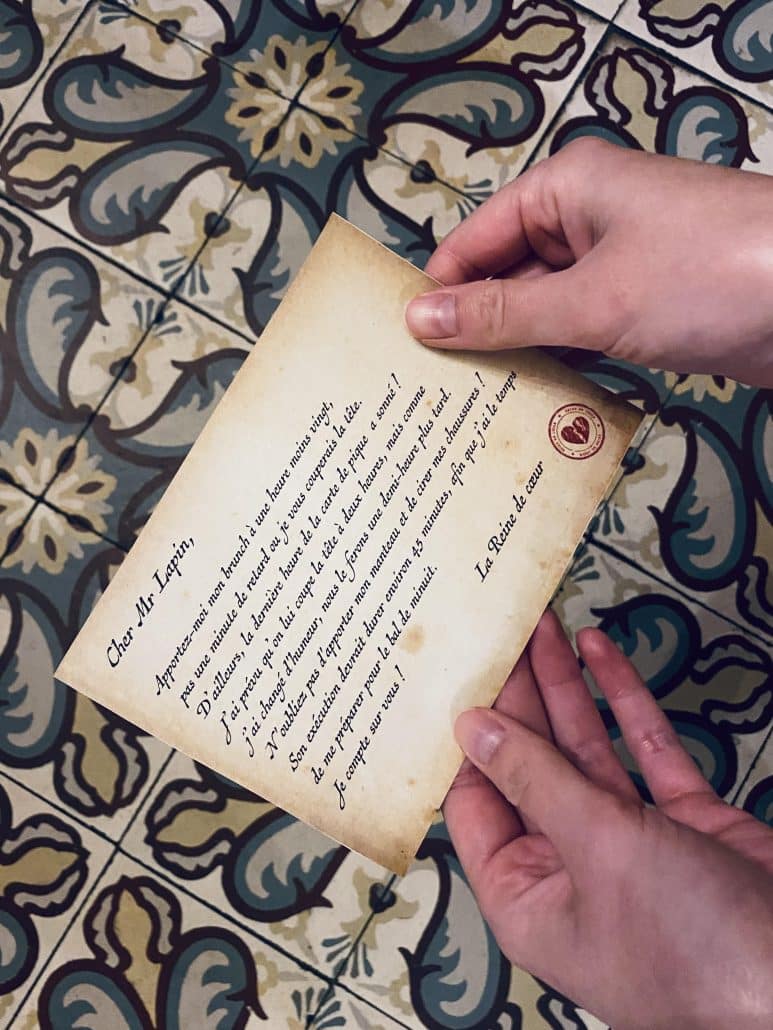 Cher Mr Lapin,
Apportez-moi mon brunch à une heure moins vingt,
pas une minute de retard ou je vous couperais la tête.
D'ailleurs, la dernière heure de la carte de pique a sonné !
J'ai prévu qu'on lui coupe la tête à deux heures, mais comme
j'ai changé d'humeur, nous le ferons une demi-heure plus tard.
N'oubliez pas d'apporter mon manteau et de cirer mes chaussures !
Son exécution devrait durer environ 45 minutes, afin que j'ai le temps
de me préparer pour le bal de minuit.
Je compte sur vous !
La Reine de cœur